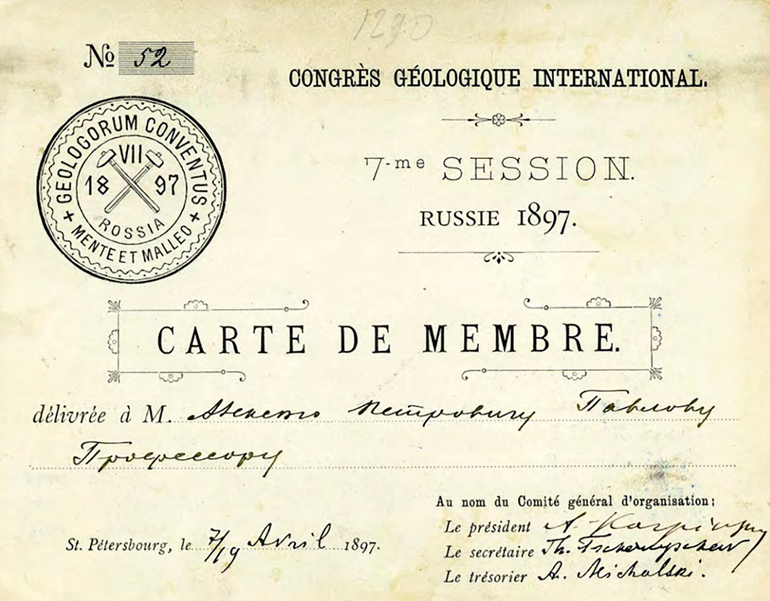 1290
№ 52
CONGRÈS GÉOLOGIQUE INTERNATIONAL.
GEOLOGORUM CONVENTUS
VII
18 97
ROSSIA
MENTE ET MALLEO
7-me SESSION.
RUSSIE 1897.
CARTE DE MEMBRE.
délivrée à M. Алексею Петровичу Павлову
Профессору
Au nom du Comité général d'organisation:
Le président A. Karpinsky
St. Pétersbourg, le 7/19 Avril 1897.
Le secrétaire Th. Tschernyschew
Le trésorier A. Michalski.